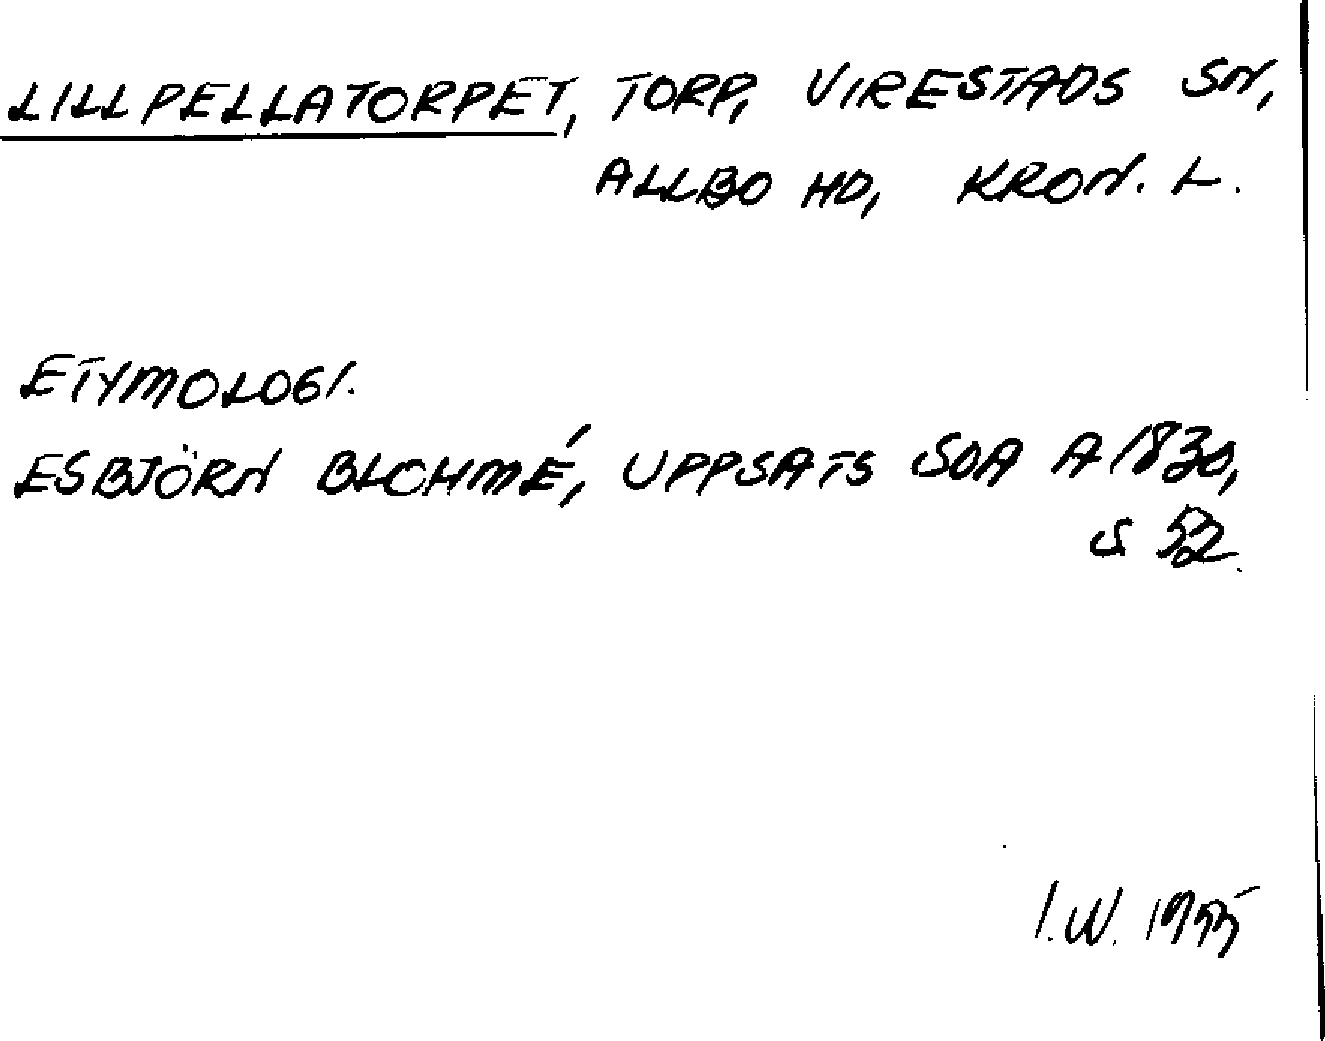 LILLPELLATORPET, TORP, VIRESTADS SN,
ALLBO HD, KRON. L.
ETYMOLOGI.
ESBJÖRN BLOHMÉ, UPPSATS SOA A 1830,
S 52.
I.W.